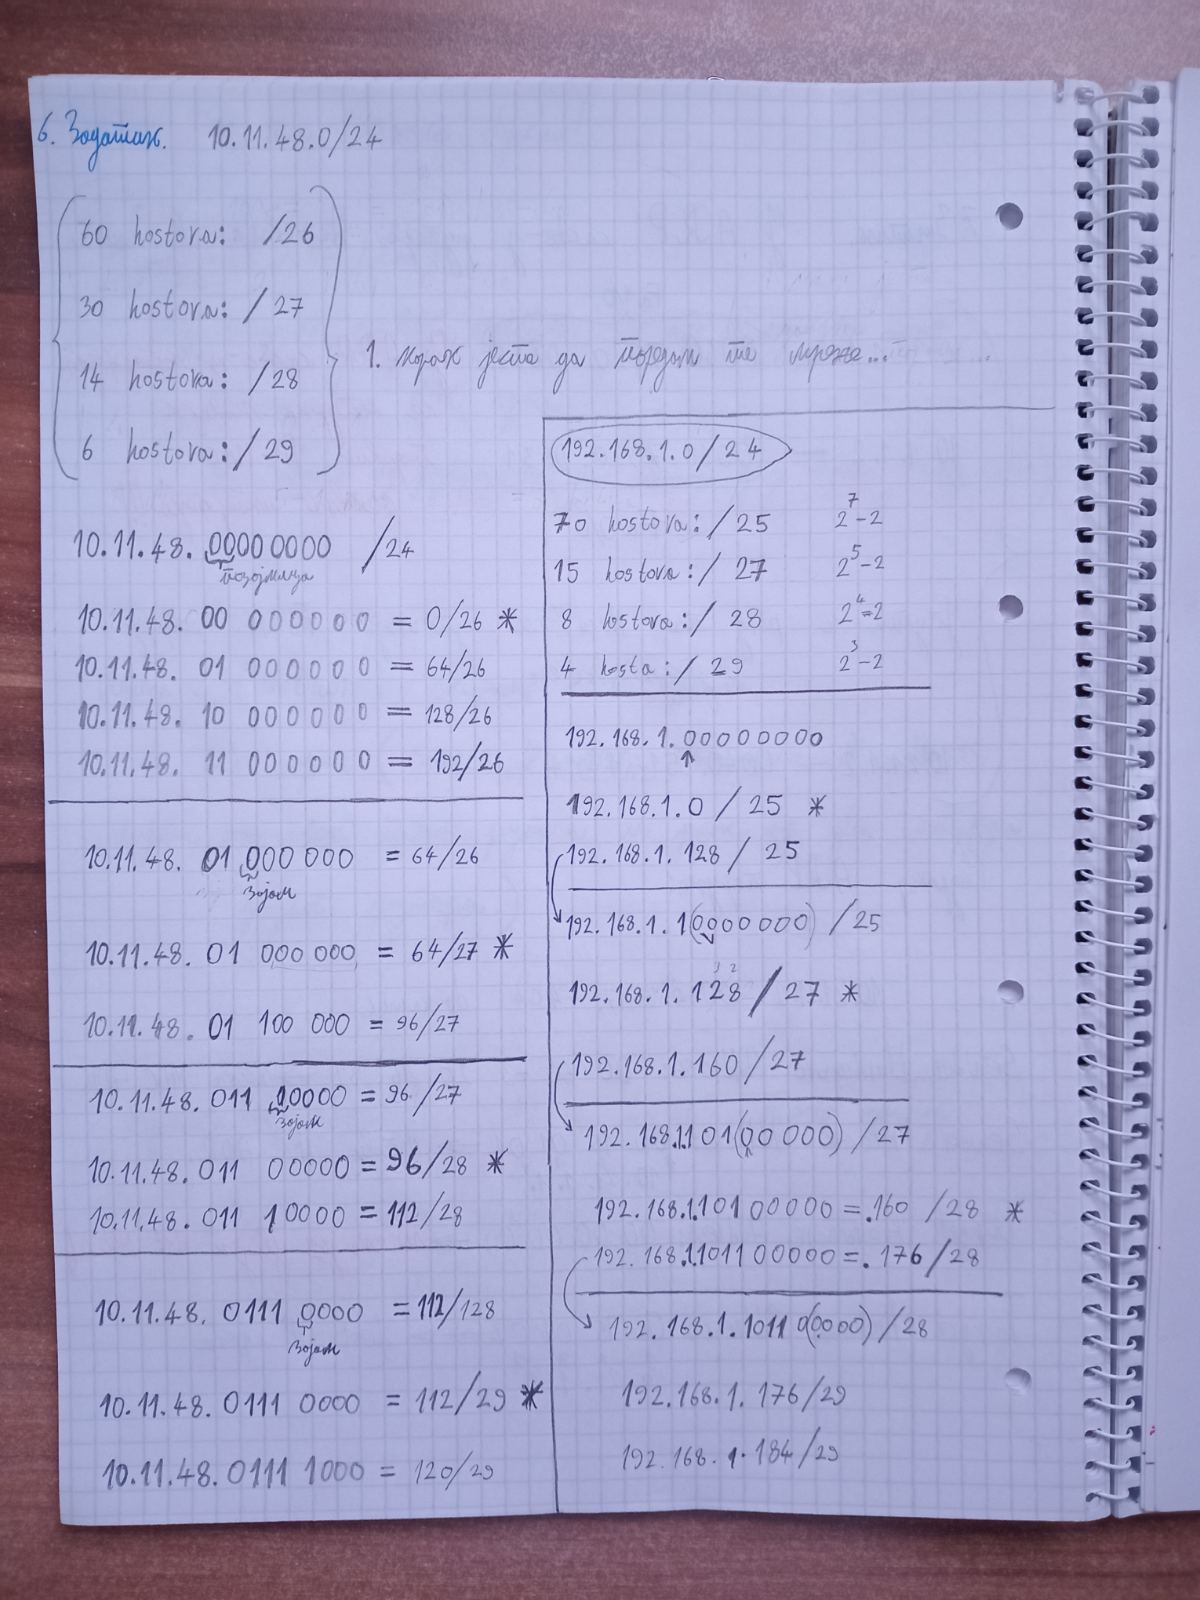 6. Задатак. 10.11.48.0/24
60 hostova: /26
30 hostova: /27
14 hostova: /28
6 hostova: /29
1. корак јесте да поређам те мреже...
10.11.48.00000000 /24
позајмица
10.11.48. 00 000000 = 0/26 *
10.11.48. 01 000000 = 64/26
10.11.48. 10 000000 = 128/26
10.11.48. 11 000000 = 192/26
10.11.48. 01 000 000 = 64/26
зајам
10.11.48. 01 000 000 = 64/27 *
10.11.48. 01 100 000 = 96/27
10.11.48. 011 00000 = 96/27
зајам
10.11.48. 011 00000 = 96/28 *
10.11.48. 011 10000 = 112/28
10.11.48. 0111 0000 = 112/128
зајам
10.11.48. 0111 0000 = 112/29 *
10.11.48. 0111 1000 = 120/29
192.168.1.0/24
70 hostova: /25 2^7-2
15 hostova: /27 2^5-2
8 hostova: /28 2^4-2
4 hosta: /29 2^3-2
192.168.1.00000000
192.168.1.0 / 25 *
192.168.1.128 / 25
192.168.1.1(0000000) /25
192.168.1.128 / 27 *
192.168.1.160 / 27
192.168.1.101(00000) /27
192.168.1.101 00000 = .160 /28 *
192.168.1.1011 00000 = .176 /28
192.168.1.1011 0(0000) /28
192.168.1.176/29
192.168.1.184/29